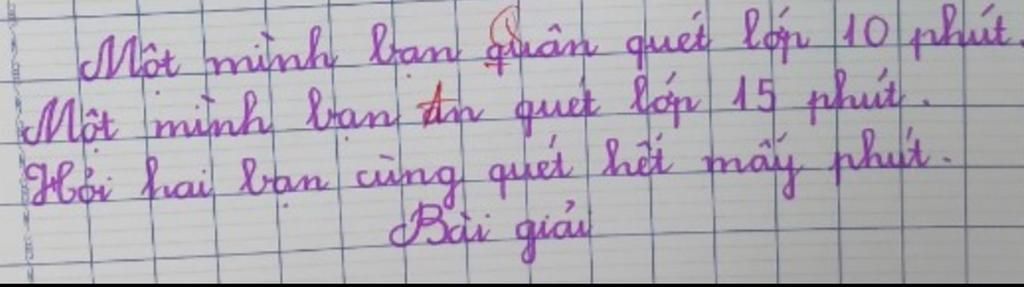 Một mình bạn Quân quét lớp 10 phút.
Một mình bạn An quét lớp 15 phút.
Hỏi hai bạn cùng quét hết mấy phút.
Bài giải